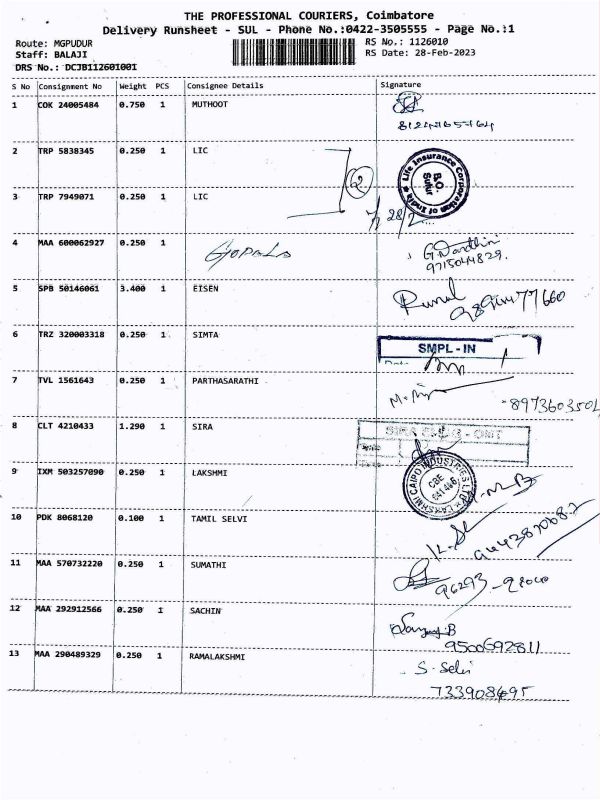 THE PROFESSIONAL COURIERS, Coimbatore
Delivery Runsheet - SUL - Phone No.:0422-3505555 - Page No.:1
Route: MGPUDUR
RS No.: 1126010
Staff: BALAJI
RS Date: 28-Feb-2023
DRS No.: DCJB112601001
S No Consignment No Weight PCS Consignee Details Signature
1 COK 24005484 0.750 1 MUTHOOT
2 TRP 5838345 0.250 1 LIC
2
Life Insurance Corporation of India
B.O.
Sulur
3 TRP 7949071 0.250 1 LIC
28/2
4 MAA 600062927 0.250 1 GOPALA
9715044829.
5 SPB 50146061 3.400 1 EISEN
6 TRZ 320003318 0.250 1 SIMTA
SMPL - IN
7 TVL 1561643 0.250 1 PARTHASARATHI
8973603501
8 CLT 4210433 1.290 1 SIRA
9 IXM 503257090 0.250 1 LAKSHMI
LAKSHMI CAIPO INDUSTRIES LTD
CBE
10 PDK 8068120 0.100 1 TAMIL SELVI
9443870687
11 MAA 570732220 0.250 1 SUMATHI
12 MAA 292912566 0.250 1 SACHIN
9500692811
13 MAA 290489329 0.250 1 RAMALAKSHMI
S. Selvi
7339084695